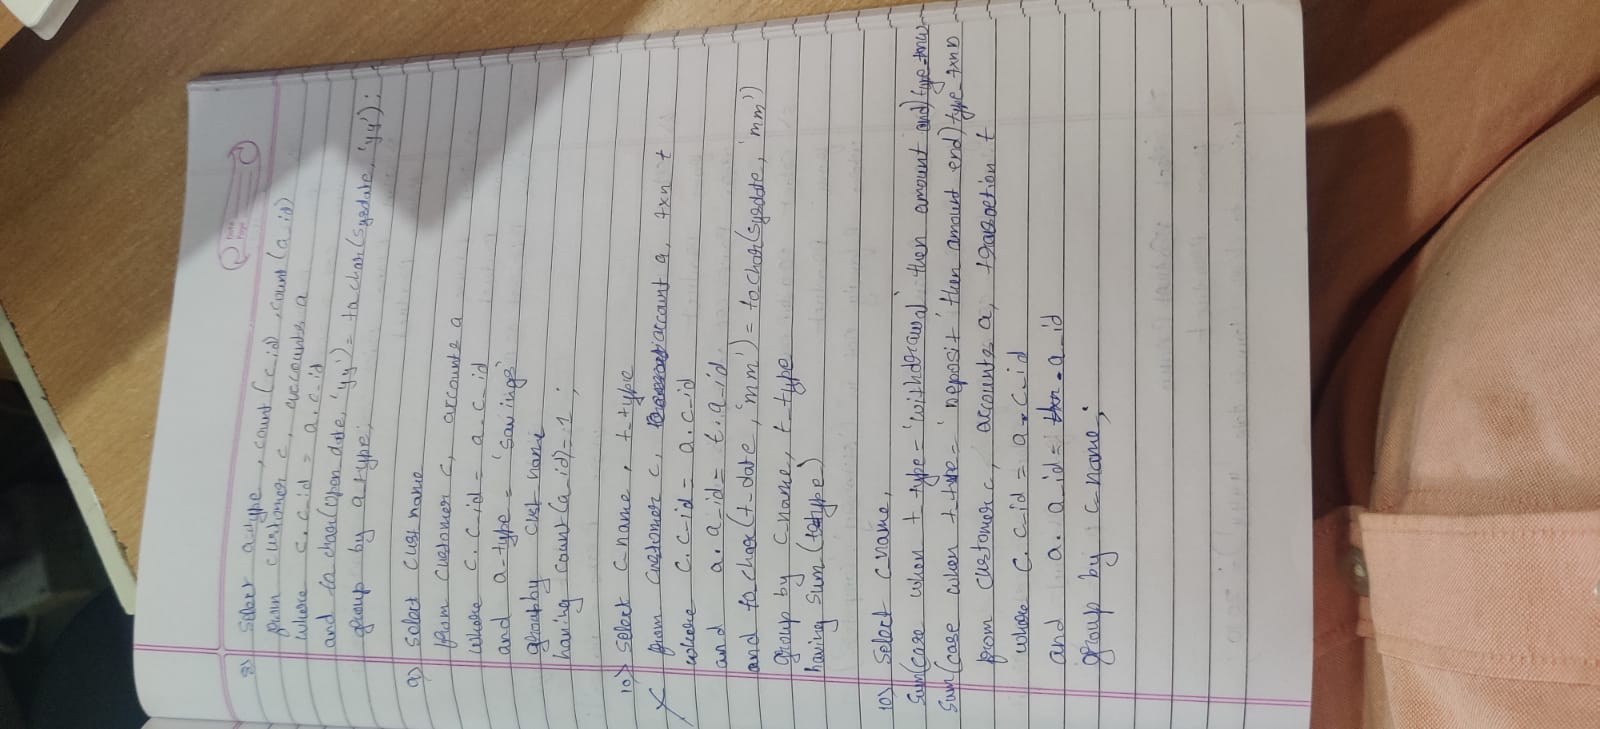 Date
Page
8) select a-type, count(c_id), count(a_id)
from customer c, accounts a
where c.c_id = a.c_id
and to char(open date, 'yy') = to char(sysdate, 'yy')
group by a type;
9) select cust name
from customer c, accounts a
where c.c_id = a.c_id
and a-type = 'savings'
group by cust name
having count(a_id)=1 ;
10) select c-name, t-type
from customer c, account a, txn t
where c.c-id = a.c_id
and a.a_id = t.a_id
and to char(t-date, 'mm') = to char(sysdate, 'mm')
group by c name, t-type
having sum(type)
10) select cname,
sum(case when t-type = 'withdrawal' then amount end) type-txnw
sum(case when t-type = 'neposit' then amount end) type-txn D
from customer c, accounts a, transaction t
where c.c_id = a.c_id
and a.a_id = .a_id
group by c-name;